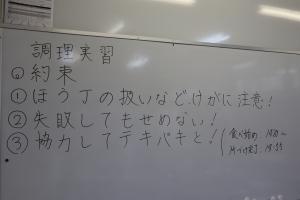 調理実習
◎約束
①ほう丁の扱いなど、けがに注意!
②失敗してもせめない!
③協力してテキパキと!
食べ始め
片づけ完了